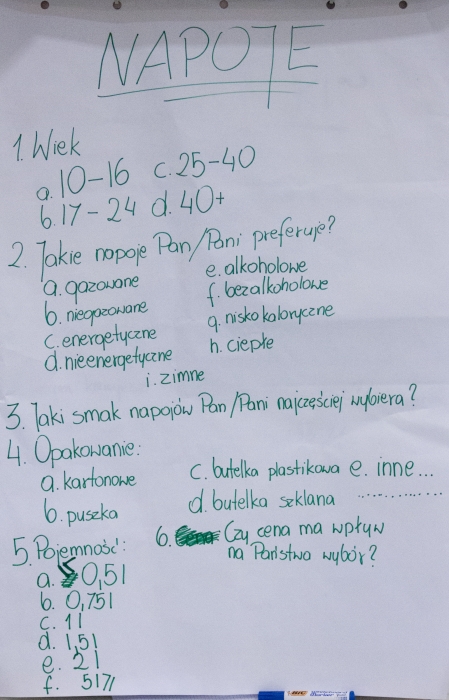 NAPOJE
1. Wiek
a. 10-16 c. 25-40
b. 17-24 d. 40+
2. Jakie napoje Pan/Pani preferuje?
a. gazowane e. alkoholowe
b. niegazowane f. bezalkoholowe
c. energetyczne g. niskokaloryczne
d. nieenergetyczne h. ciepłe
i. zimne
3. Jaki smak napojów Pan/Pani najczęściej wybiera?
4. Opakowanie:
a. kartonowe c. butelka plastikowa e. inne...
b. puszka d. butelka szklana ..............
5. Pojemność:
a. 0,5l
b. 0,75l
c. 1l
d. 1,5l
e. 2l
f. 5l
6. Czy cena ma wpływ
na Państwa wybór?
BIC